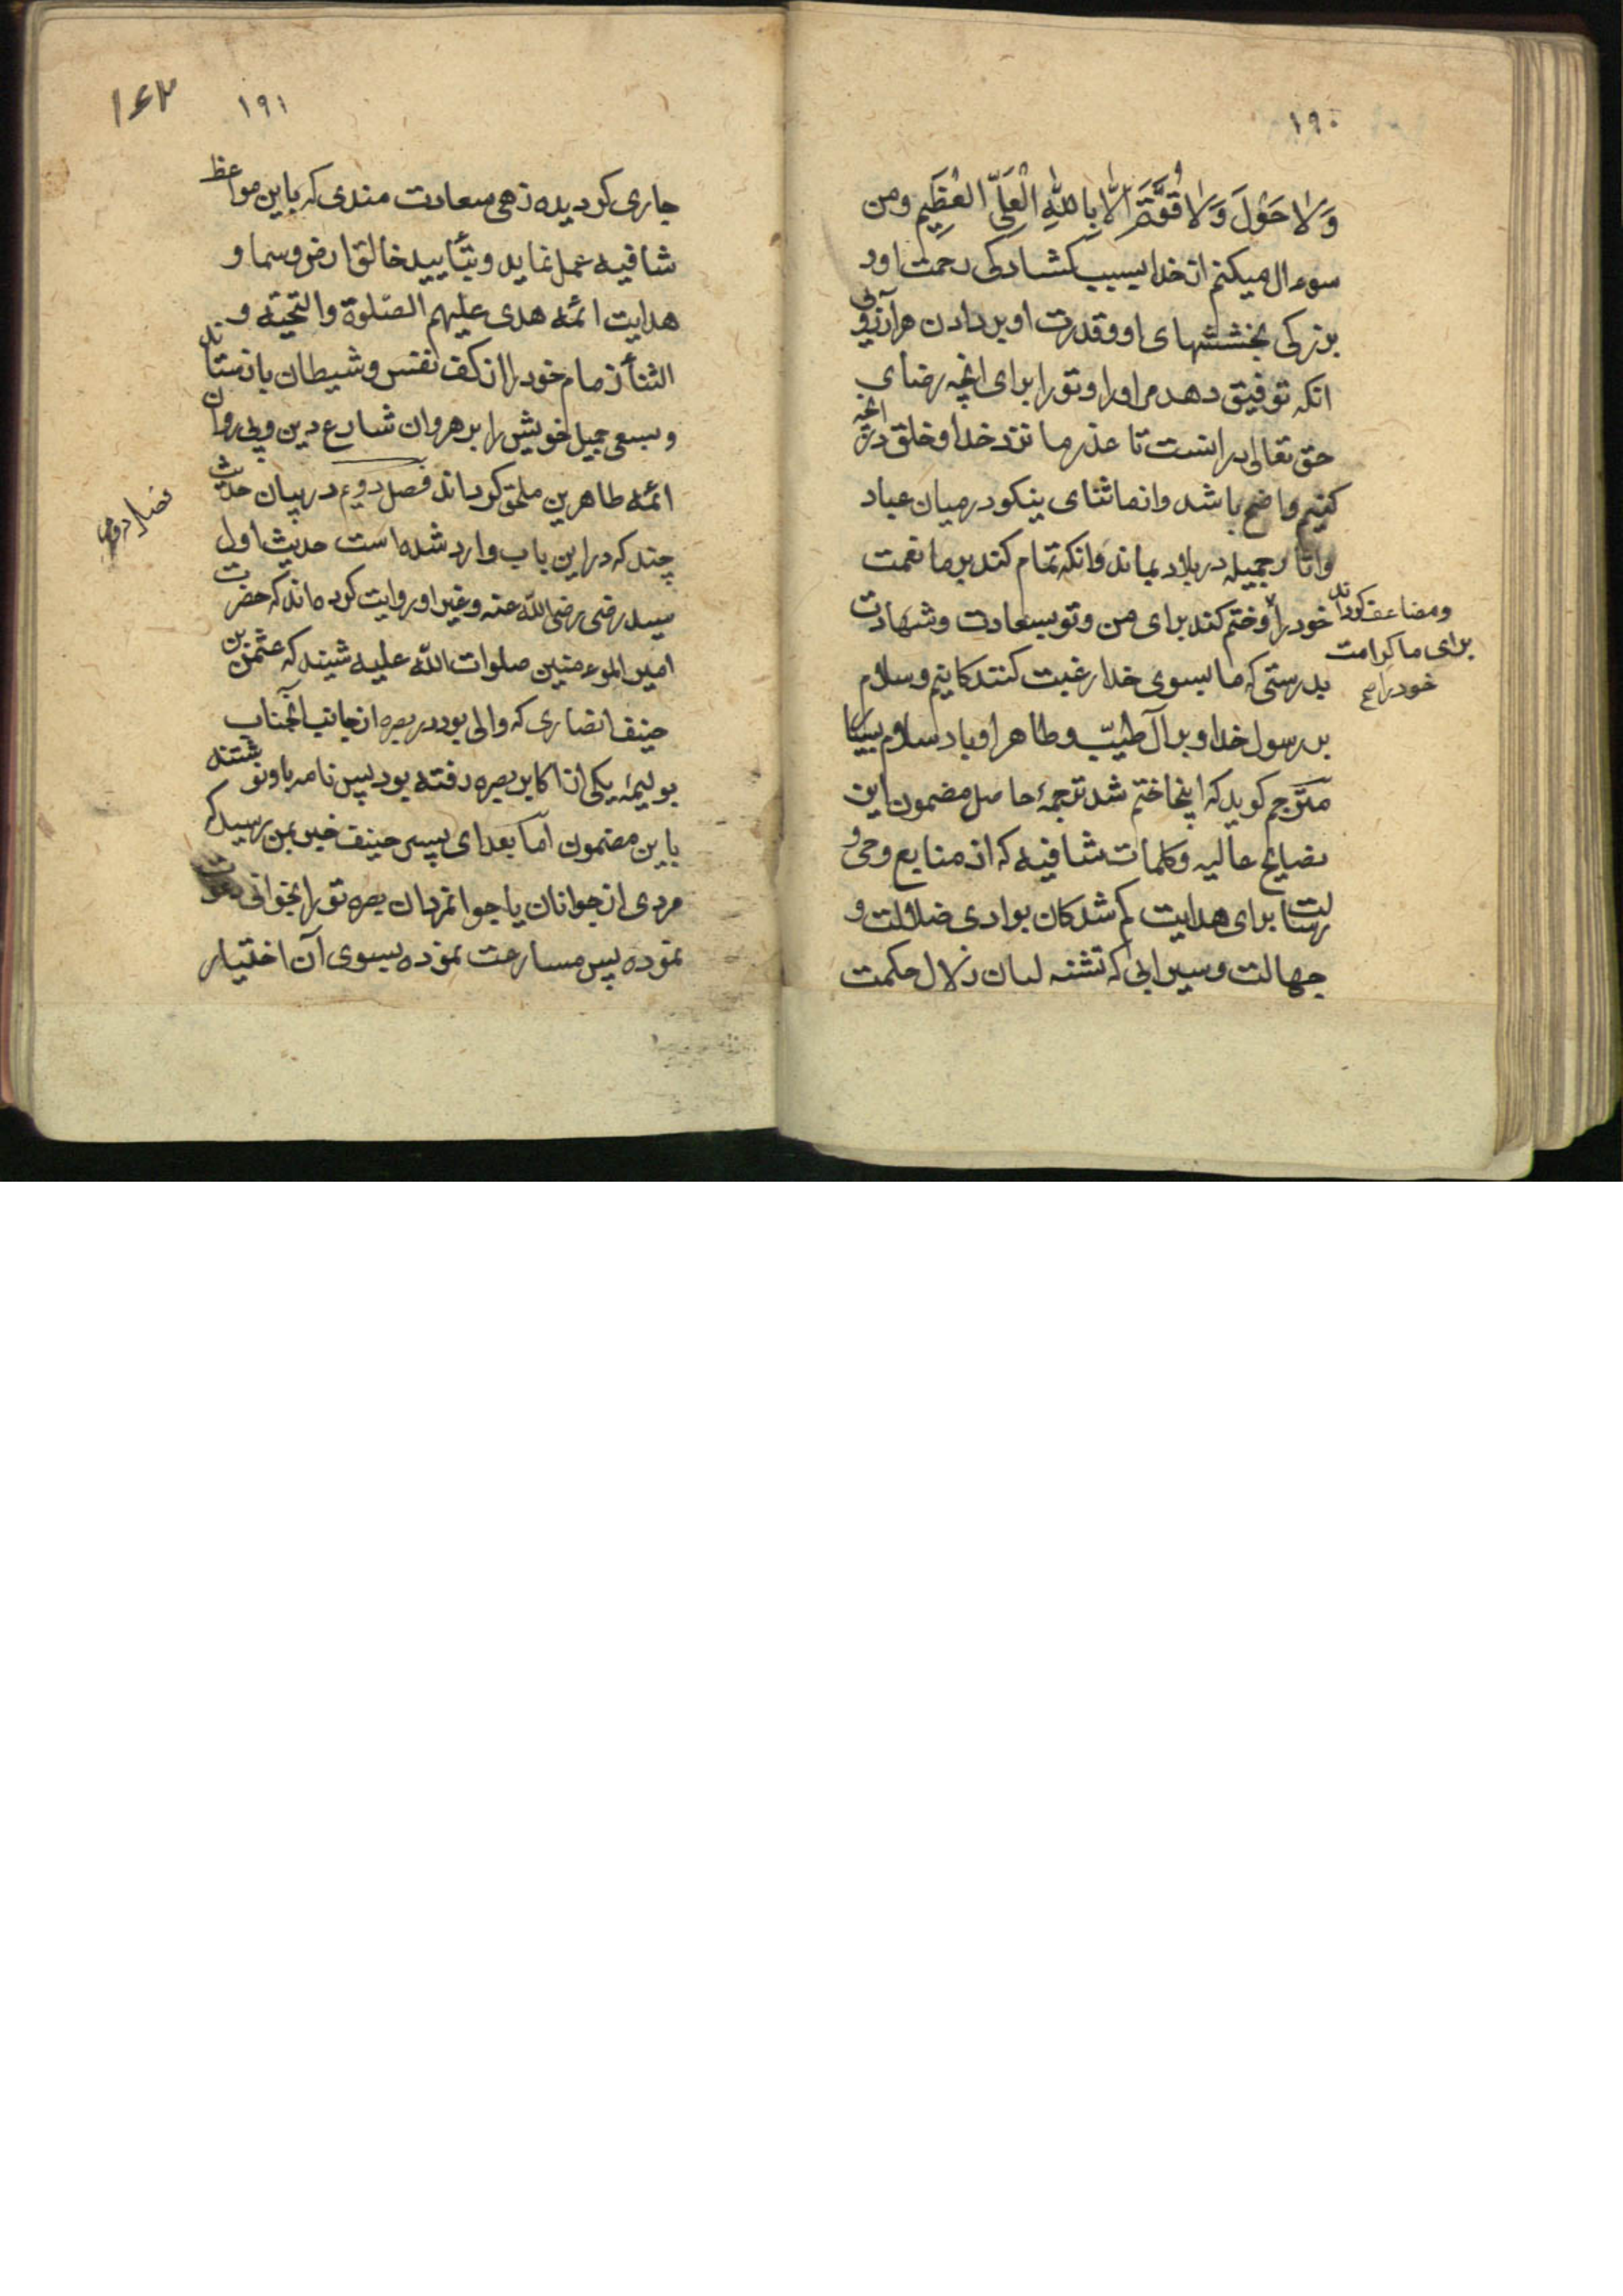 ۱۹۰
وَلا حَوْلَ وَلا قُوَّةَ اِلّا بِاللّٰهِ الْعَلِیِّ الْعَظِیمِ ومن
سوءال میکنم از خدا بسبب کشادکی رحمت او و
بزرکی بخششهای او و قدرت او بر دادن هر آرزوئی
انکه توفیق دهد مرا و را و تو را برای انچه رضای
حق تعالی در انست تا عذر ما نزد خدا و خلق در انچه
کنیم واضح باشد و از ما ثنای نیکو در میان عباد
و اثار جمیله در بلاد بماند و انکه تمام کند بر ما نعمت
خود را و ختم کند برای من و تو بسعادت و شهادت
ومضاعف کرداند
برای ما کرامت
خود را صح
بدرستی که ما بسوی خدا رغبت کنندکانیم و سلام
بر رسول خدا و بر آل طیّب و طاهر او باد سلام بسیار
مترجم کوید که اینجا ختم شد ترجمهٔ حاصل مضمون این
نصایح عالیه و کلمات شافیه که از منابع وحی و
رسالت برای هدایت کم شدکان بوادی ضلالت و
جهالت و سیرابی که تشنه لبان زلال حکمت
۱۹۱
۱۶۲
جاری کردیده زهی سعادت مندی که باین مواعظ
شافیه عمل نماید و بتأیید خالق ارض و سما و
هدایت ائمّه هدی علیهم الصّلوة والتحیّه و
الثنأ زمام خود را از کف نفس و شیطان بازستاند
و بسعی جمیل خویش را برهروان شارع دین و پی روان
ائمّه طاهرین ملحق کرداند فصل دویم در بیان حدیث
فصل دویم
چند که در این باب وارد شده است حدیث اول
سید رضی رضی اللّه عنه و غیر او روایت کرده اند که حضرت
امیر الموءمنین صلوات اللّه علیه شنید که عثمن بن
حنیف انصاری که والی بود در بصره از جانب آنجناب
بولیمهٔ یکی از اکابر بصره رفته بود پس نامه باو نوشتند
باین مضمون امّا بعد ای پسر حنیف خبر بمن رسید که
مردی از جوانان یا جوانمردان بصره تو را بخوانی دعوت
نموده پس مسارعت نموده بسوی آن اختیار